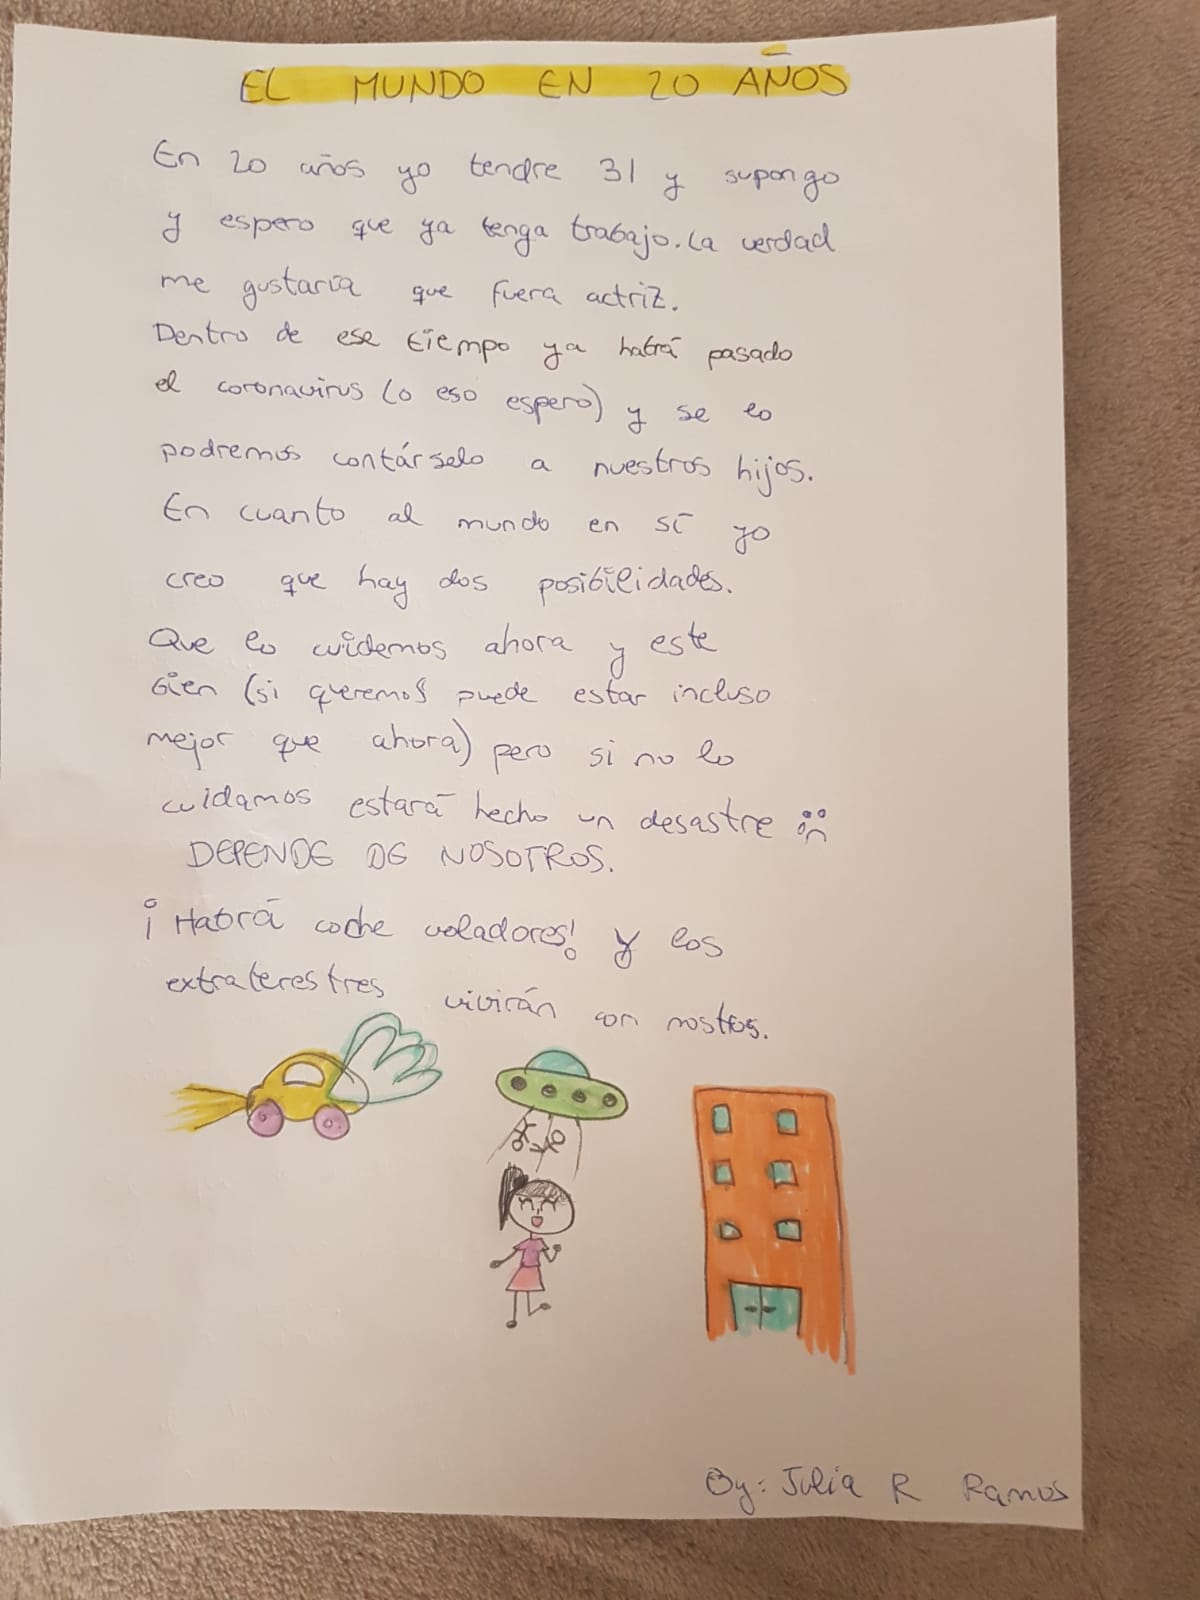 EL MUNDO EN 20 AÑOS
En 20 años yo tendre 31 y supongo
y espero que ya tenga trabajo. La verdad
me gustaría que fuera actriz.
Dentro de ese tiempo ya habrá pasado
el coronavirus (o eso espero) y se lo
podremos contárselo a nuestros hijos.
En cuanto al mundo en sí yo
creo que hay dos posibilidades.
Que lo cuidemos ahora y este
bien (si queremos puede estar incluso
mejor que ahora) pero si no lo
cuidamos estará hecho un desastre
DEPENDE DE NOSOTROS.
¡Habrá coche voladores! Y los
extraterestres vivirán con
By: Julia R Ramos